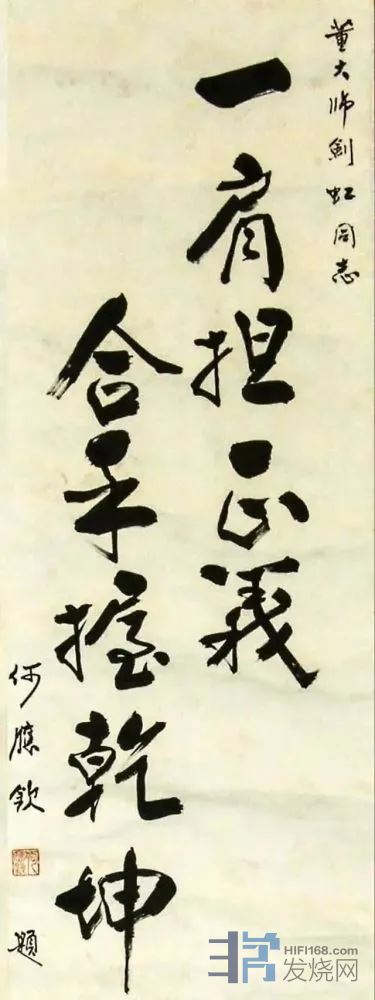 董大师劍虹同志
一肩担正義
合手握乾坤
何應欽
題
HIFI168.com
发烧网